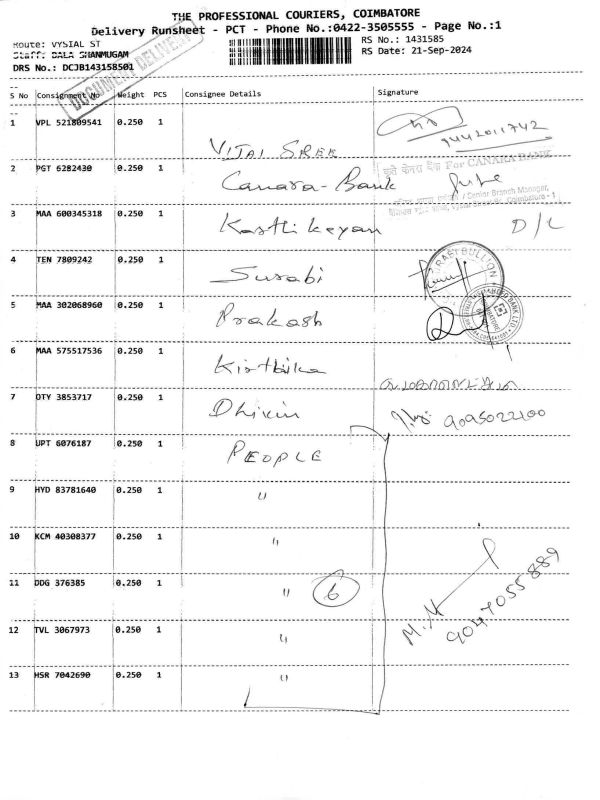 THE PROFESSIONAL COURIERS, COIMBATORE
Delivery Runsheet - PCT - Phone No.:0422-3505555 - Page No.:1
Route: VYSIAL ST
RS No.: 1431585
Staff: BALA SHANMUGAM
RS Date: 21-Sep-2024
DRS No.: DCJB143158501
DOCUMENT DELIVERY
S No Consignment No Weight PCS Consignee Details Signature
1 VPL 521809541 0.250 1 VIJAI SREE 9442011742
2 PGT 6282430 0.250 1 Canara-Bank
कृते केनरा बैंक For CANARA BANK
/ Senior Branch Manager,
Coimbatore - 1
3 MAA 600345318 0.250 1 Karthikeyan D/L
4 TEN 7809242 0.250 1 Surabi
BULLION
5 MAA 302068960 0.250 1 Prakash
BANK LTD.
6 MAA 575517536 0.250 1 Kirthika
7 OTY 3853717 0.250 1 Dhikin 9095022100
8 UPT 6076187 0.250 1 PEOPLE
9 HYD 83781640 0.250 1 "
10 KCM 40308377 0.250 1 "
11 DDG 376385 0.250 1 " 6
12 TVL 3067973 0.250 1 "
M.M
9047055889
13 HSR 7042690 0.250 1 "